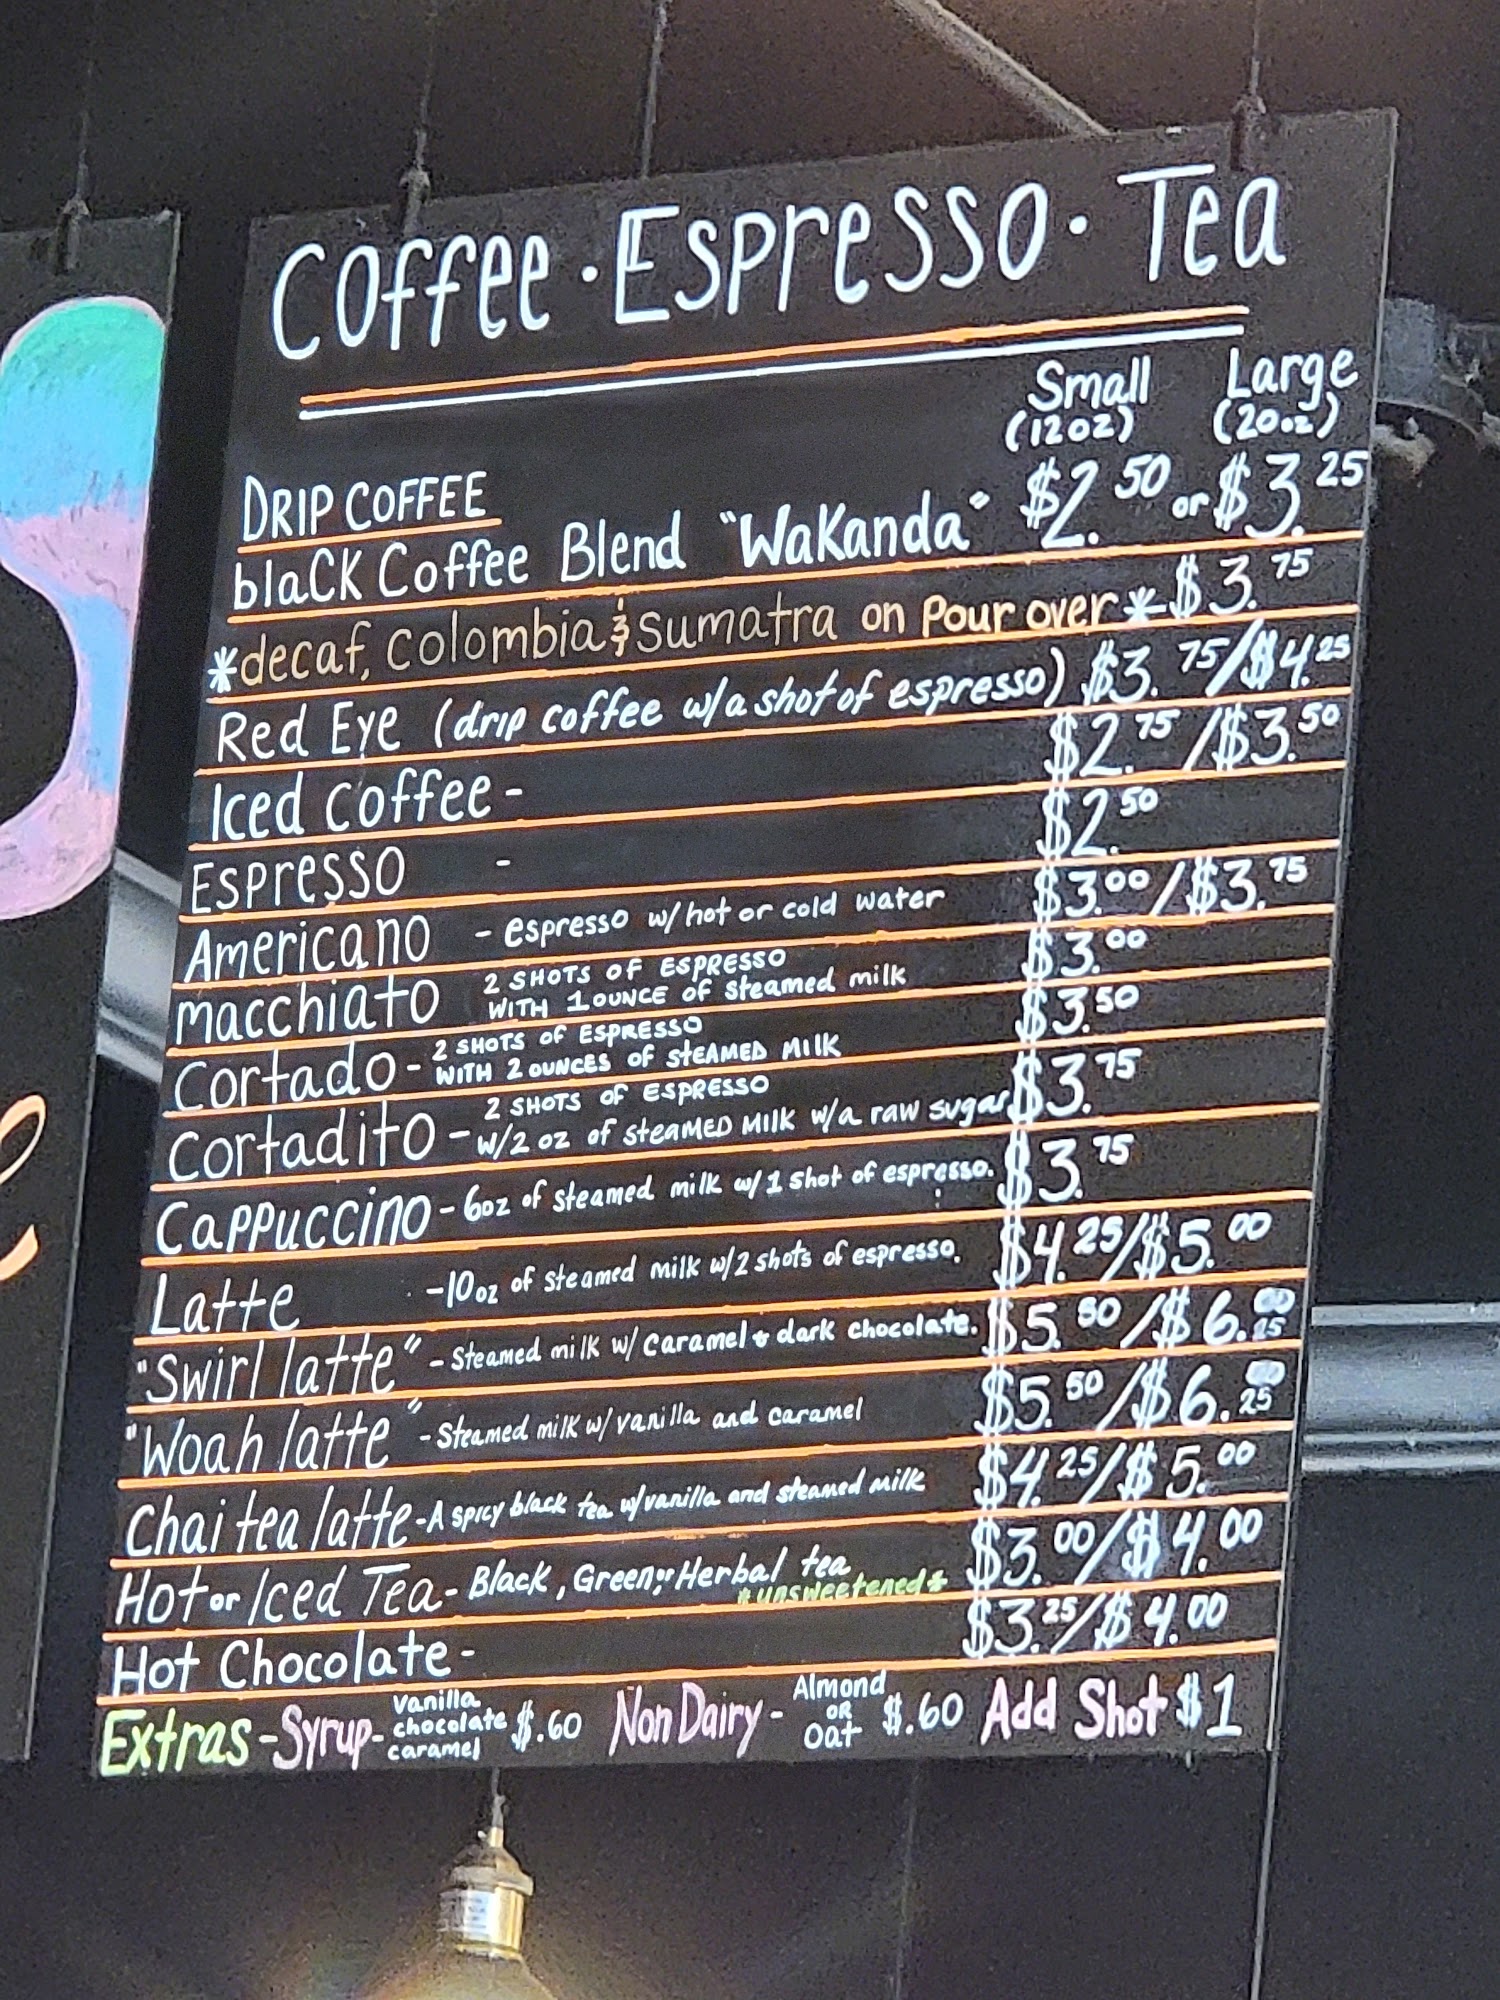 Coffee · Espresso · Tea
Small Large
(12oz) (20oz)
DRIP COFFEE
blaCK Coffee Blend "WaKanda" $2.50 or $3.25
*decaf, Colombia & Sumatra on Pour over* $3.75
Red Eye (drip coffee w/a shot of espresso) $3.75/$4.25
Iced coffee - $2.75/$3.50
Espresso - $2.50
Americano - espresso w/ hot or cold water $3.00/$3.75
macchiato 2 SHOTS OF ESPRESSO $3.00
WITH 1 OUNCE OF Steamed milk
Cortado - 2 SHOTS OF ESPRESSO $3.50
WITH 2 OUNCES OF STEAMED MILK
Cortadito - 2 SHOTS OF ESPRESSO $3.75
W/2 OZ of steaMED MILK w/a raw sugar
Cappuccino - 6oz of steamed milk w/ 1 shot of espresso. $3.75
Latte - 10oz of steamed milk w/2 shots of espresso. $4.25/$5.00
"Swirl latte" - Steamed milk w/ caramel & dark chocolate. $5.50/$6.25
"Woah latte" - Steamed milk w/ vanilla and caramel $5.50/$6.25
Chai tea latte - A spicy black tea w/vanilla and steamed milk $4.25/$5.00
Hot or Iced Tea - Black, Green, or Herbal tea $3.00/$4.00
*unsweetened*
Hot Chocolate - $3.25/$4.00
Extras - Syrup - Vanilla chocolate caramel $.60 Non Dairy - Almond OR Oat $.60 Add Shot $1